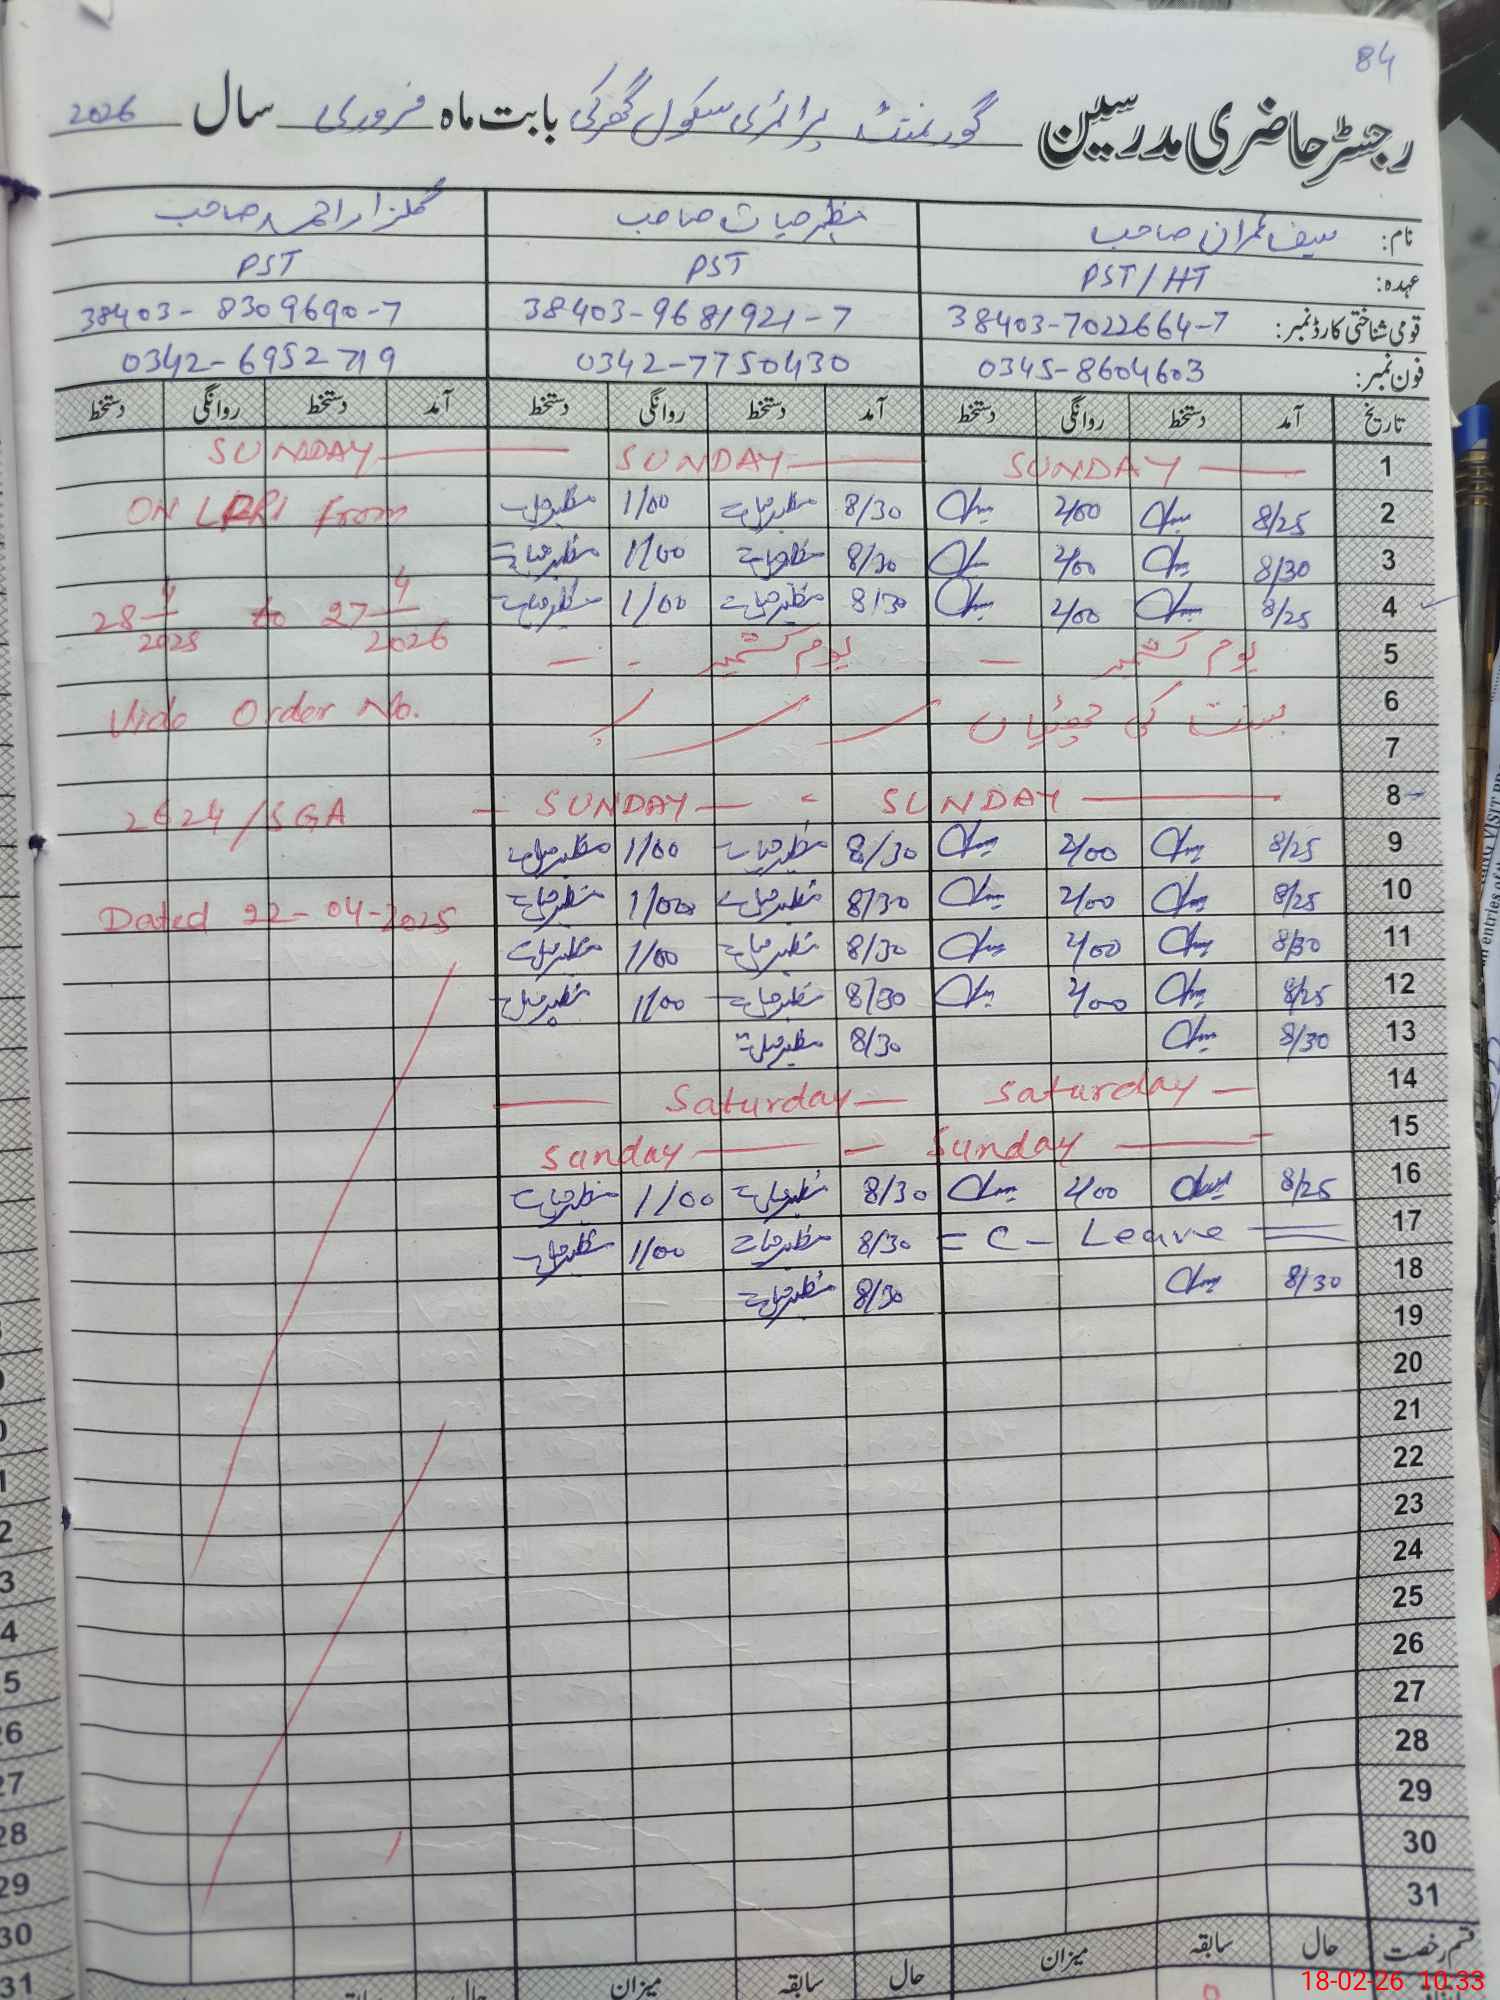 84
رجسٹر حاضری مدرسین گورنمنٹ پرائمری سکول گھرکی بابت ماہ فروری سال 2026
نام: سیف عمران صاحب مظہر حیات صاحب گلزار احمد صاحب
عہدہ: PST/HT PST PST
قومی شناختی کارڈ نمبر: 38403-7022664-7 38403-9681921-7 38403-8309690-7
فون نمبر: 0345-8604603 0342-7750430 0342-6952719
تاریخ آمد دستخط روانگی دستخط آمد دستخط روانگی دستخط آمد دستخط روانگی دستخط
1 SUNDAY SUNDAY SUNDAY
2 8/25 2/00 8/30 مظہر حیات 1/00 مظہر حیات ON LPR from
3 8/30 2/00 8/30 مظہر حیات 1/00 مظہر حیات
4 8/25 2/00 8/30 مظہر حیات 1/00 مظہر حیات 28 4 2025 to 27 4 2026
5 یوم کشمیر یوم کشمیر
6 بسنت کی چھٹیاں Vide Order No.
7
8 SUNDAY SUNDAY 2624/SGA
9 8/25 2/00 8/30 مظہر حیات 1/00 مظہر حیات
10 8/25 2/00 8/30 مظہر حیات 1/00 مظہر حیات Dated 22-04-2025
11 8/30 2/00 8/30 مظہر حیات 1/00 مظہر حیات
12 8/25 2/00 8/30 مظہر حیات 1/00 مظہر حیات
13 8/30 8/30 مظہر حیات
14 Saturday Saturday
15 Sunday Sunday
16 8/25 2/00 8/30 مظہر حیات 1/00 مظہر حیات
17 C-Leave 8/30 مظہر حیات 1/00 مظہر حیات
18 8/30 8/30 مظہر حیات
19
20
21
22
23
24
25
26
27
28
29
30
31
قسم رخصت حال سابقہ میزان حال سابقہ میزان حال
18-02-26 10:33